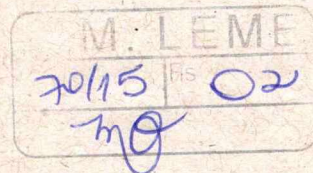 M. LEME
70/15 Fls 02